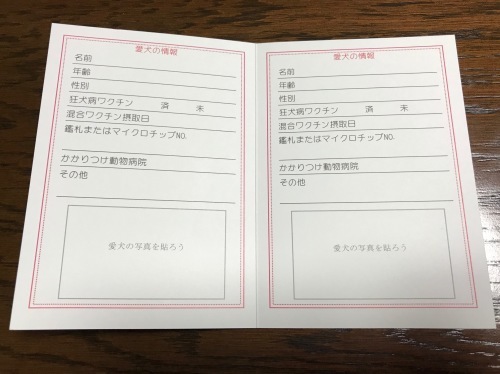 愛犬の情報
名前
年齢
性別
狂犬病ワクチン 済 未
混合ワクチン摂取日
鑑札またはマイクロチップNO.
かかりつけ動物病院
その他
愛犬の写真を貼ろう
愛犬の情報
名前
年齢
性別
狂犬病ワクチン 済 未
混合ワクチン摂取日
鑑札またはマイクロチップNO.
かかりつけ動物病院
その他
愛犬の写真を貼ろう